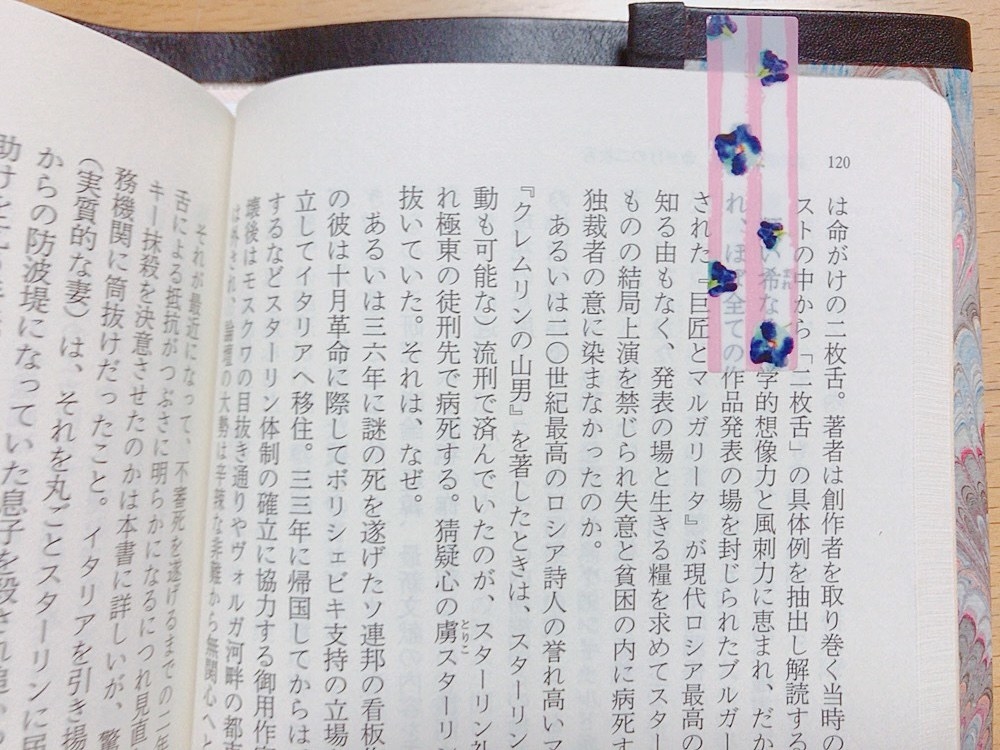 120
は命がけの二枚舌。著者は創作者を取り巻く当時の
ストの中から「二枚舌」の具体例を抽出し解読する
い希な学的想像力と風刺力に恵まれ、だか
れ、ほ全ての作品発表の場を封じられたブルガー
された『巨匠とマルガリータ』が現代ロシア最高の
知る由もなく、発表の場と生きる糧を求めてスター
ものの結局上演を禁じられ失意と貧困の内に病死す
独裁者の意に染まなかったのか。
あるいは二〇世紀最高のロシア詩人の誉れ高いマ
『クレムリンの山男』を著したときは、スターリン
動も可能な）流刑で済んでいたのが、スターリン礼
れ極東の徒刑先で病死する。猜疑心の虜スターリ
抜いていた。それは、なぜ。
あるいは三六年に謎の死を遂げたソ連邦の看板作
の彼は十月革命に際してボリシェビキ支持の立場
立してイタリアへ移住。三三年に帰国してからは
するなどスターリン体制の確立に協力する御用作家
壊後はモスクワの目抜き通りやヴォルガ河畔の都市
は外され、論壇の大勢は辛辣な非難から無関心へと
それが最近になって、不審死を遂げるまでの二年
舌による抵抗がつぶさに明らかになるにつれ見直
キー抹殺を決意させたのかは本書に詳しいが、驚
務機関に筒抜けだったこと。イタリアを引き揚
（実質的な妻）は、それを丸ごとスターリンに
からの防波堤になっていた息子を殺され追い
助けを